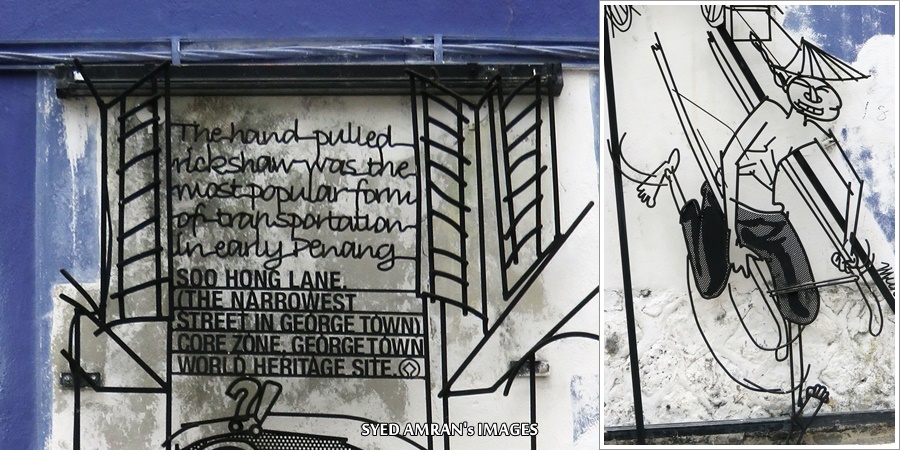 The hand pulled
rickshaw was the
most popular form
of transportation
in early Penang
SOO HONG LANE.
(THE NARROWEST
STREET IN GEORGE TOWN)
CORE ZONE, GEORGETOWN
WORLD HERITAGE SITE.
?!
SYED AMRAN's IMAGES